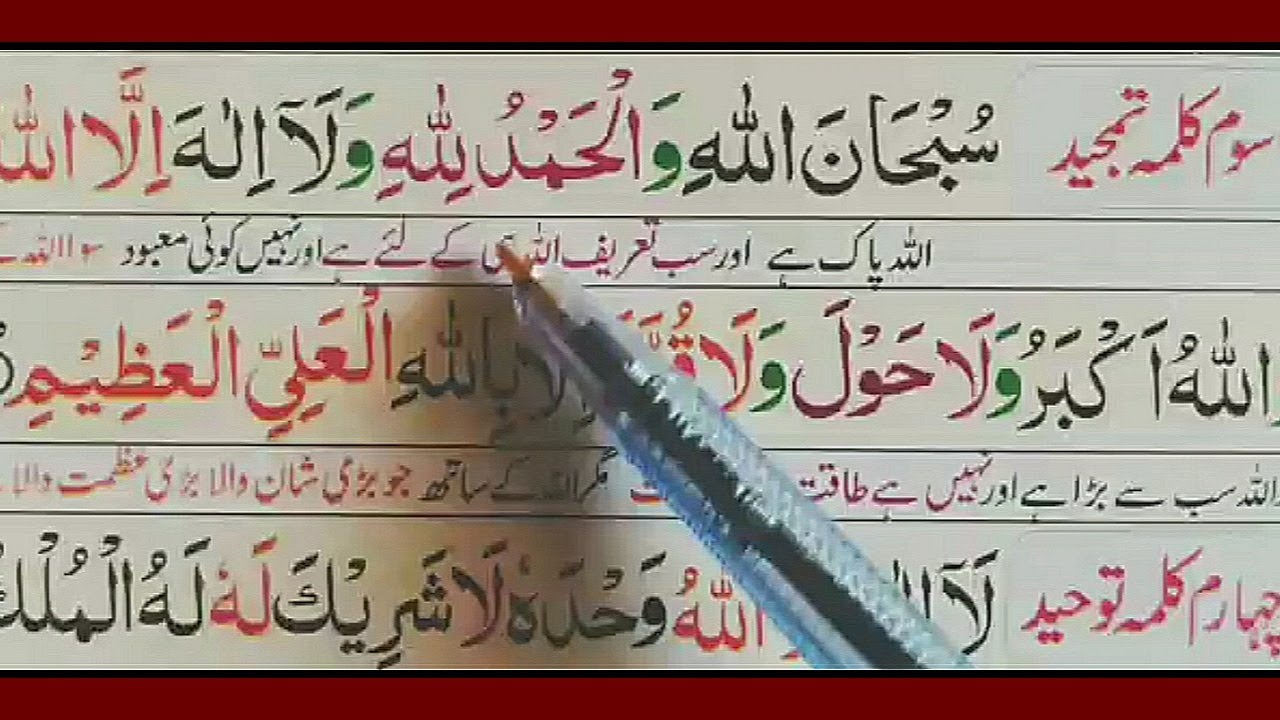 سوم کلمہ تمجید
سُبْحَانَ اللّٰهِ وَالْحَمْدُ لِلّٰهِ وَلَآ اِلٰهَ اِلَّا اللّٰهُ
اللہ پاک ہے اور سب تعریف اللہ کے لئے ہے اور نہیں کوئی معبود
اللّٰهُ اَكْبَرُ وَلَا حَوْلَ وَلَا بِاللّٰهِ الْعَلِيِّ الْعَظِيْمِ
اللہ سب سے بڑا ہے اور نہیں ہے طاقت مگر اللہ کے ساتھ جو بڑی شان والا بڑی عظمت والا
چہارم کلمہ توحید
لَآ اللّٰهُ وَحْدَهٗ لَا شَرِيْكَ لَهٗ لَهُ الْمُلْكُ